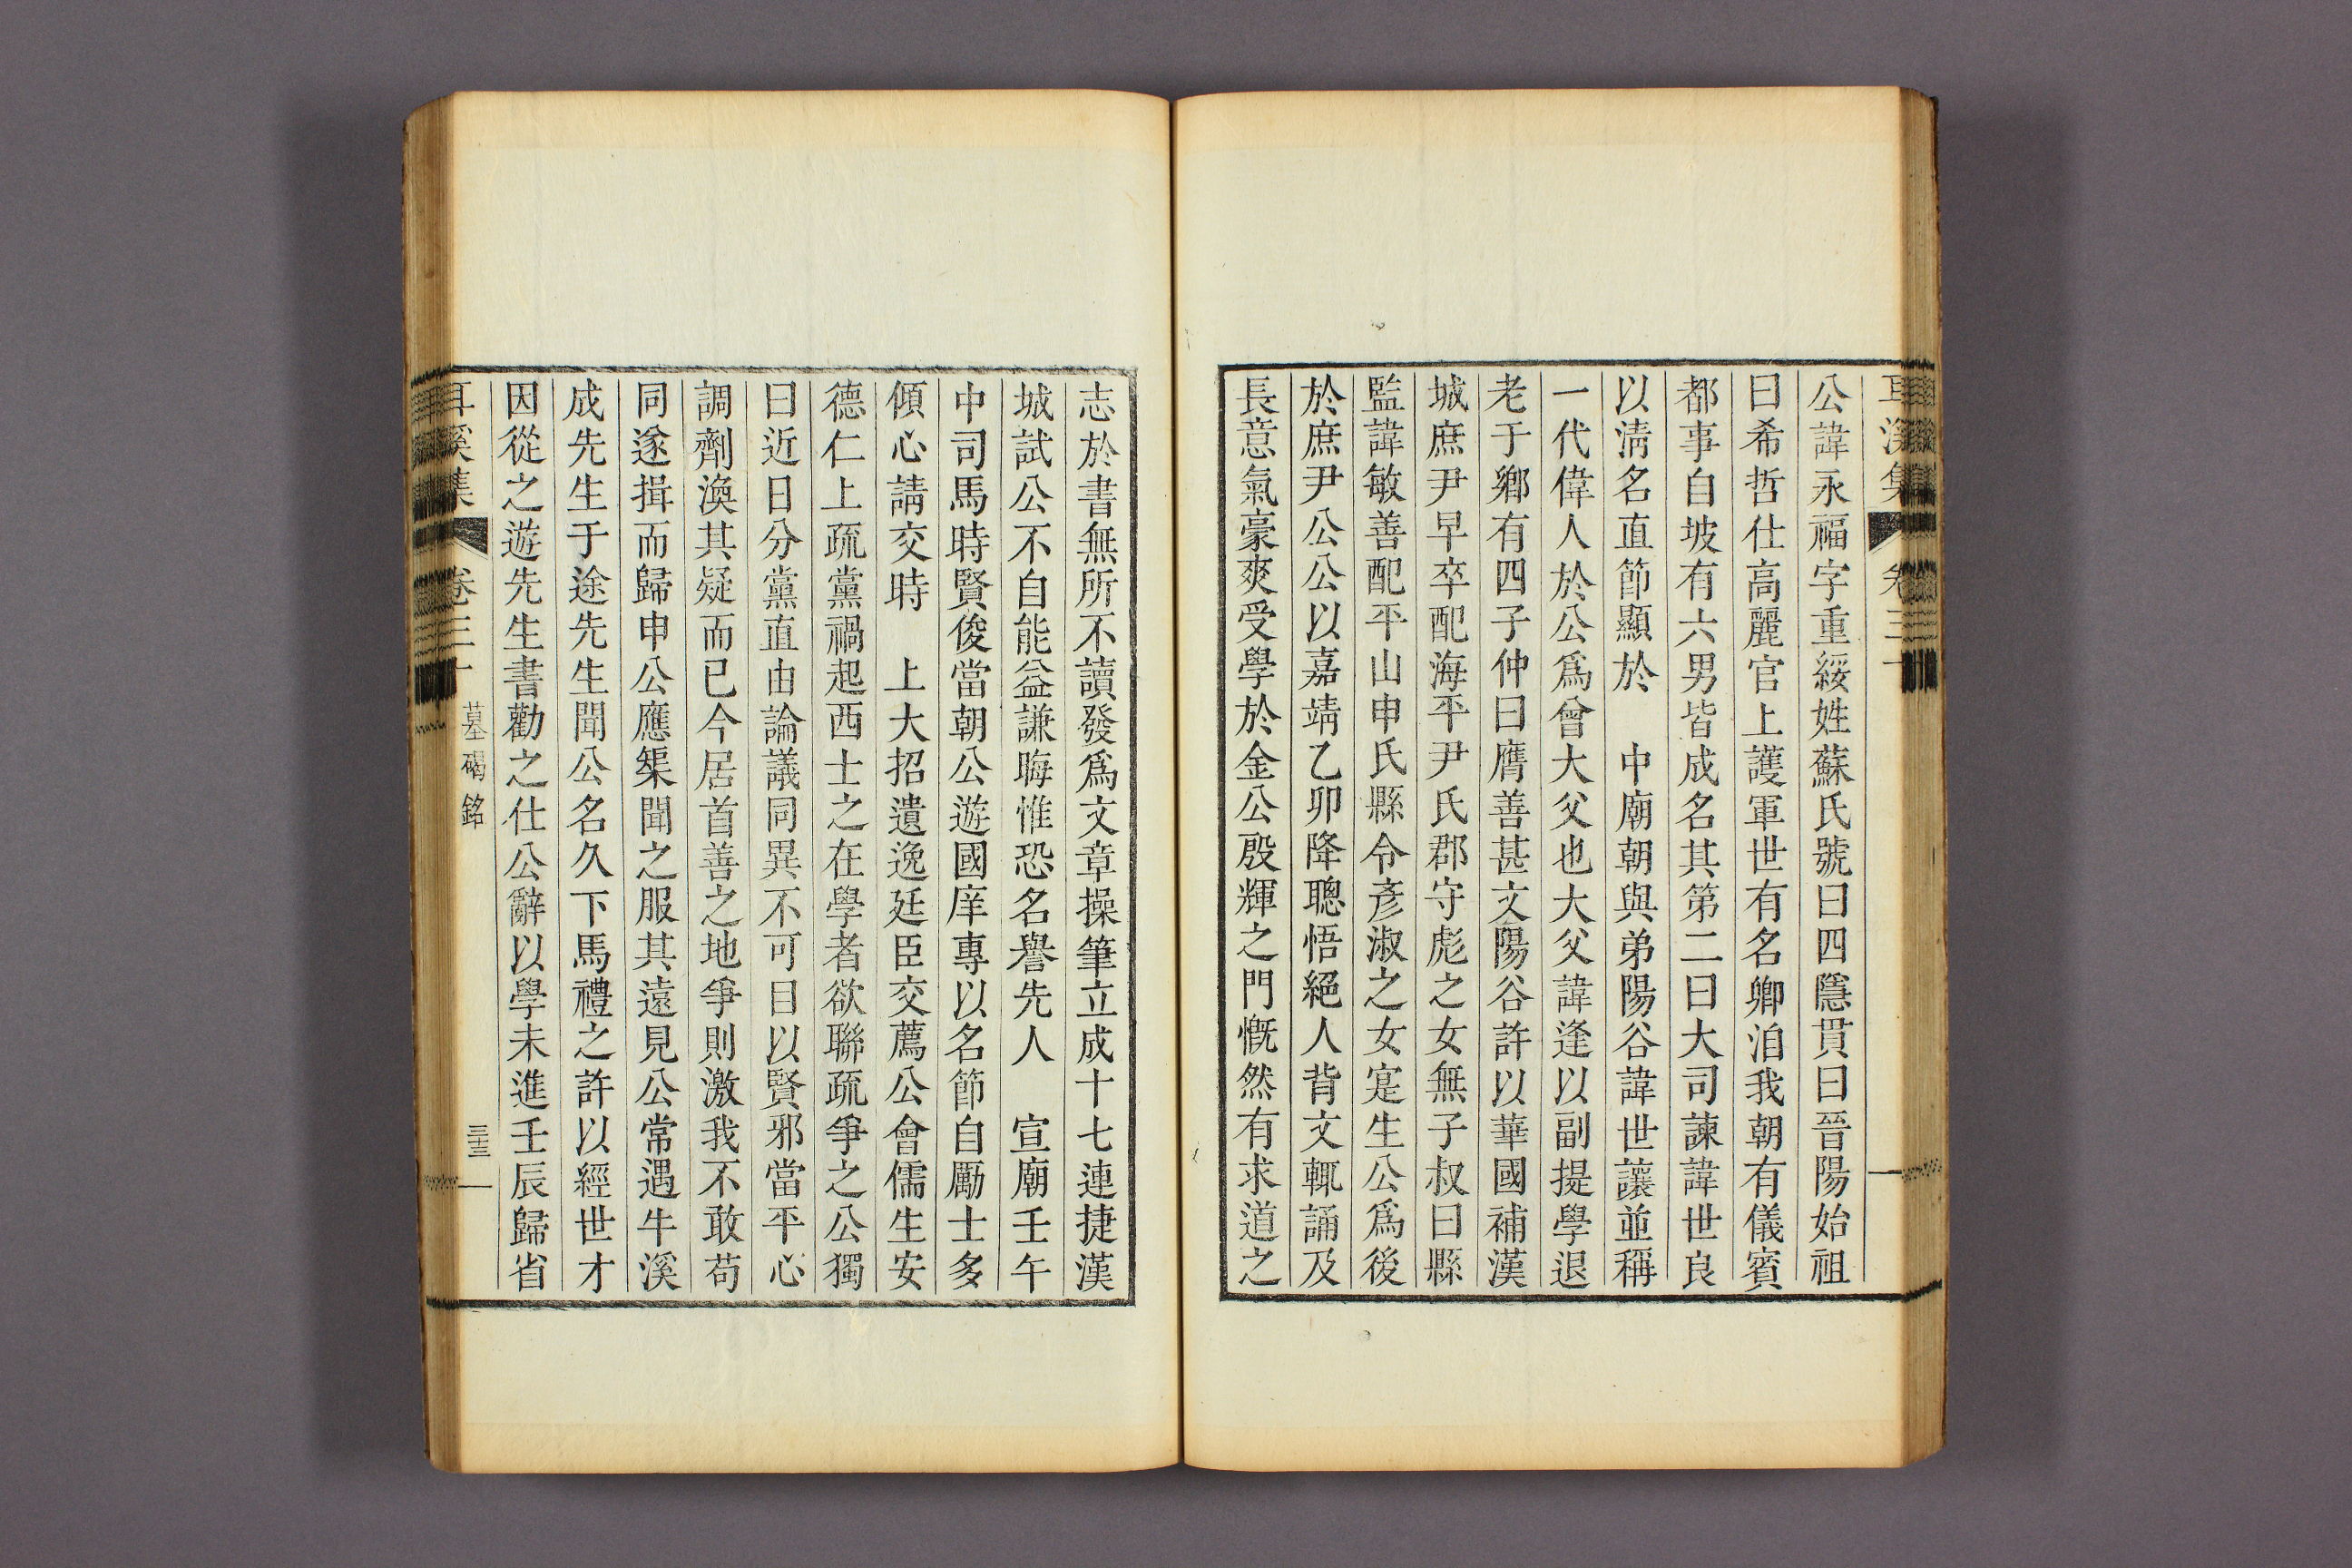 耳溪集 卷三十
公諱永福字重綏姓蘇氏號曰四隱貫曰晉陽始祖
曰希哲仕高麗官上護軍世有名卿洎我朝有儀賓
都事自坡有六男皆成名其第二曰大司諫諱世良
以淸名直節顯於　中廟朝與弟陽谷諱世讓並稱
一代偉人於公爲曾大父也大父諱逢以副提學退
老于鄕有四子仲曰膺善甚文陽谷許以華國補漢
城庶尹早卒配海平尹氏郡守彪之女無子叔曰縣
監諱敏善配平山申氏縣令彥淑之女寔生公爲後
於庶尹公公以嘉靖乙卯降聰悟絕人背文輒誦及
長意氣豪爽受學於金公殷輝之門慨然有求道之
志於書無所不讀發爲文章操筆立成十七連捷漢
城試公不自能益謙晦惟恐名譽先人　宣廟壬午
中司馬時賢俊當朝公遊國庠專以名節自勵士多
傾心請交時　上大招遺逸廷臣交薦公會儒生安
德仁上疏黨禍起西士之在學者欲聯疏爭之公獨
曰近日分黨直由論議同異不可目以賢邪當平心
調劑渙其疑而已今居首善之地爭則激我不敢苟
同遂揖而歸申公應榘聞之服其遠見公常遇牛溪
成先生于途先生聞公名久下馬禮之許以經世才
因從之遊先生書勸之仕公辭以學未進壬辰歸省
耳溪集 卷三十 墓碣銘 三十三